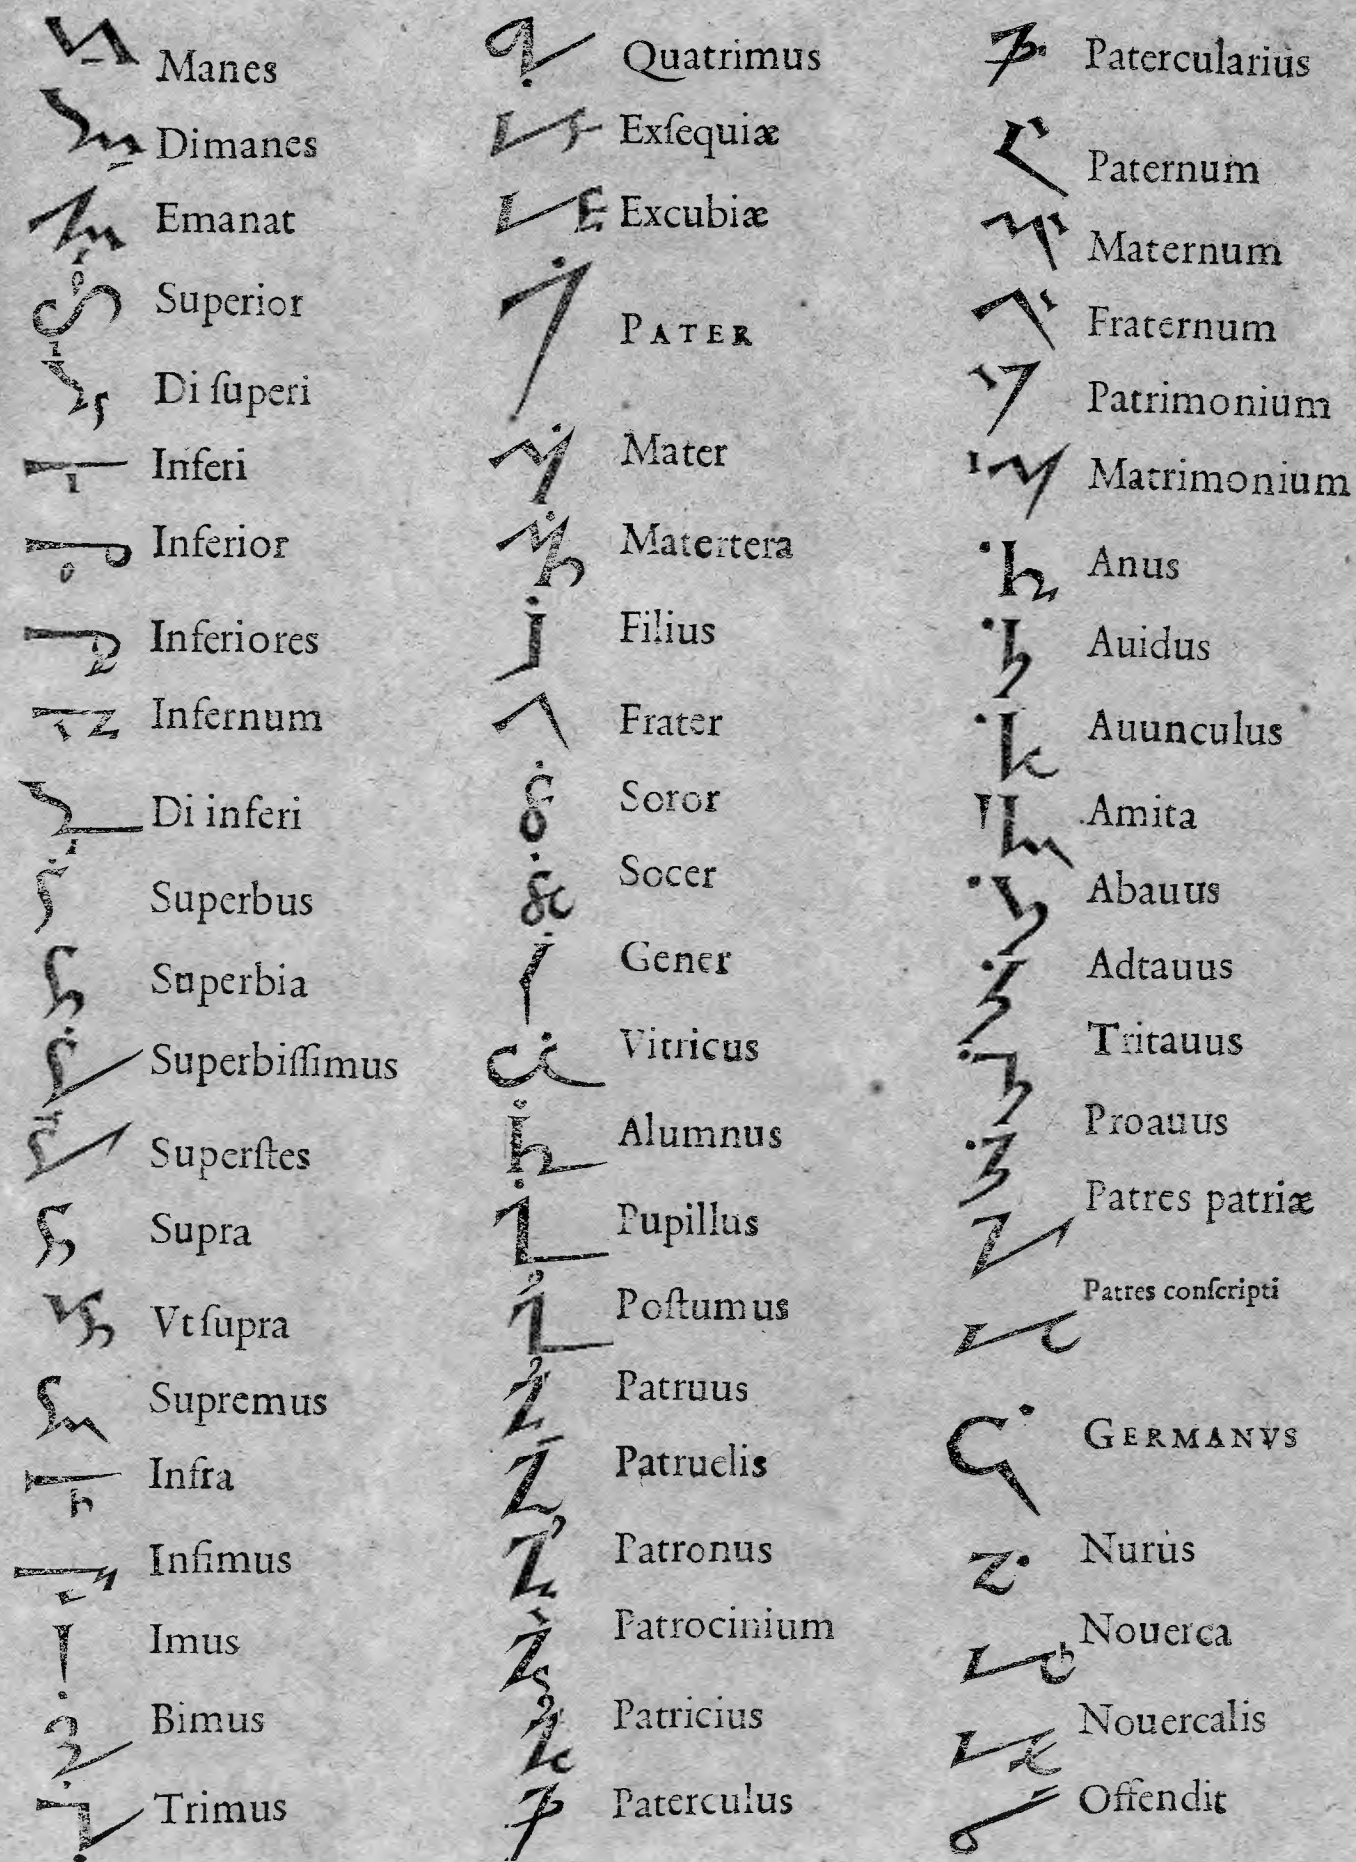 Manes
Dimanes
Emanat
Superior
Di ſuperi
Inferi
Inferior
Inferiores
Infernum
Di inferi
Superbus
Superbia
Superbiſſimus
Superſtes
Supra
Vt ſupra
Supremus
Infra
Infimus
Imus
Bimus
Trimus
Quatrimus
Exſequiæ
Excubiæ
PATER
Mater
Matertera
Filius
Frater
Soror
Socer
Gener
Vitricus
Alumnus
Pupillus
Poſtumus
Patruus
Patruelis
Patronus
Patrocinium
Patricius
Paterculus
Patercularius
Paternum
Maternum
Fraternum
Patrimonium
Matrimonium
Anus
Auidus
Auunculus
Amita
Abauus
Adtauus
Tritauus
Proauus
Patres patriæ
Patres conſcripti
GERMANVS
Nurus
Nouerca
Nouercalis
Offendit